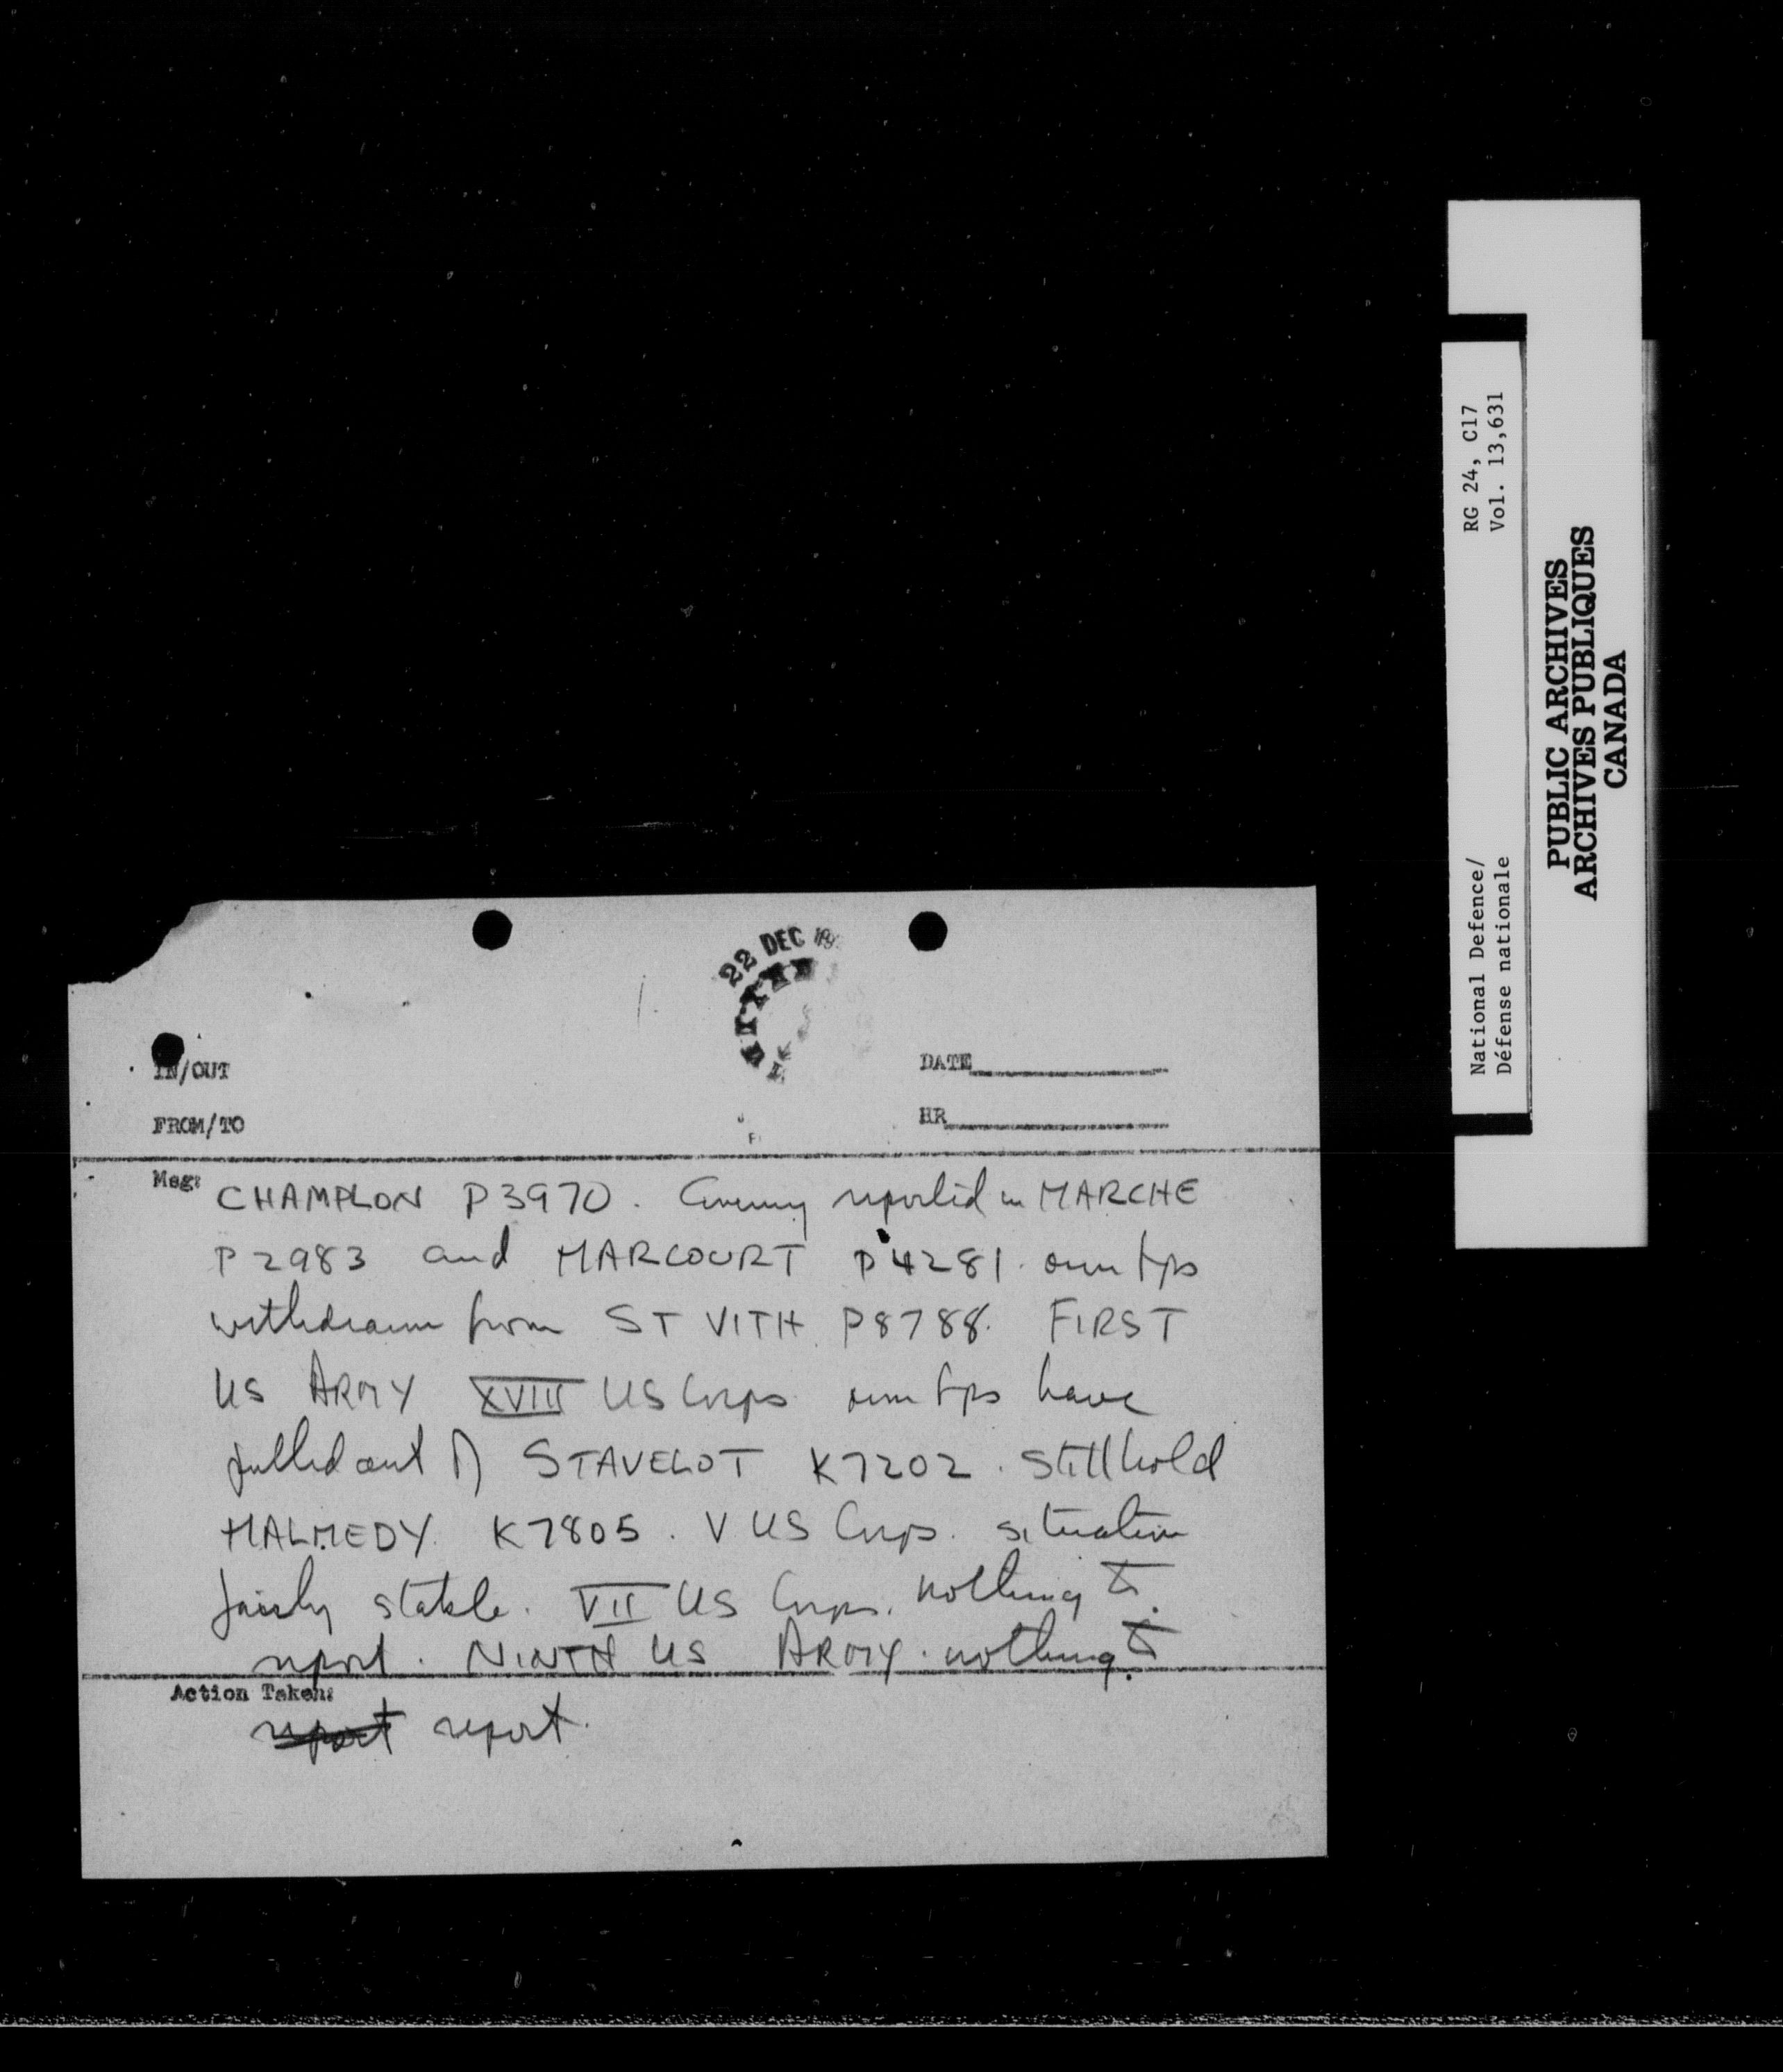 22 DEC 19
IN/OUT
DATE
FROM/TO
HR
Msg: CHAMPLON P3970. Enemy reported in MARCHE
P2983 and MARCOURT P4281. own tps
withdrawn from ST VITH P8788. FIRST
US ARMY XVIII US Corps own tps have
pulled out of STAVELOT K7202. Still hold
MALMEDY K7805. V US Corps. situation
fairly stable. VII US Corps. nothing to
report. NINTH US ARMY. nothing to
Action Taken:
report report.
RG 24, C17
Vol. 13,631
National Defence/
Défense nationale
PUBLIC ARCHIVES
ARCHIVES PUBLIQUES
CANADA